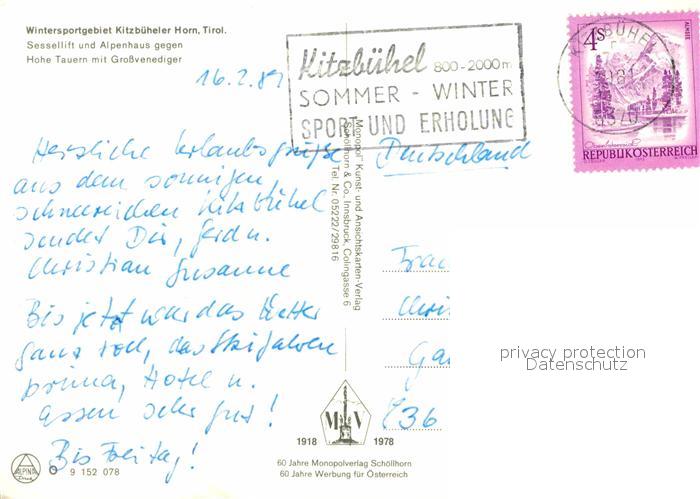 Wintersportgebiet Kitzbüheler Horn, Tirol.
Sessellift und Alpenhaus gegen
Hohe Tauern mit Großvenediger
16.2.81
Kitzbühel 800-2000m
SOMMER - WINTER
SPORT UND ERHOLUNG
4S
ALMSEE
REPUBLIK ÖSTERREICH
Herzliche Urlaubsgrüße
aus dem sonnigen,
schneereichen Kitzbühel
sendet Dir, Gerd u.
Christian Susanne
Bis jetzt war das Wetter
ganz toll, das Skifahren
prima, Hotel u.
Essen sehr gut!
Bis Freitag!
Monopol Kunst- und Ansichtskarten-Verlag
Schöllhorn & Co., Innsbruck, Colingasse 6
Tel Nr. 05222/29816
Deutschland
Frau
Chri
Ga
privacy protection
Datenschutz
M V
1918 1978
60 Jahre Monopolverlag Schöllhorn
60 Jahre Werbung für Österreich
ALPINA
9 152 078